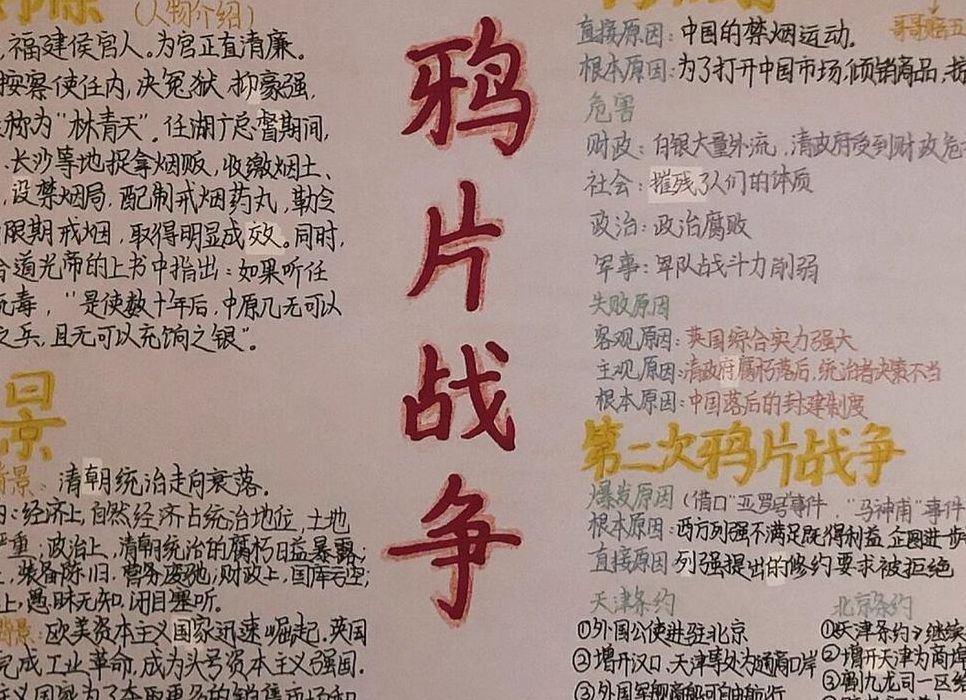 (人物介绍)
福建侯官人。为官正直清廉。
按察使任内,决冤狱,抑豪强,
称为“林青天”。任湖广总督期间,
、长沙等地捉拿烟贩,收缴烟土、
,设禁烟局,配制戒烟药丸,勒令
限期戒烟,取得明显成效。同时,
道光帝的上书中指出:如果听任
流毒,“是使数十年后,中原几无可以
之兵,且无可以充饷之银”。
景
背景:清朝统治走向衰落。
:经济上,自然经济占统治地位,土地
严重,政治上,清朝统治的腐朽日益暴露;
,装备陈旧,营务废弛;财政上,国库
上,愚昧无知,闭目塞听。
背景:欧美资本主义国家迅速崛起,英国
完成工业革命,成为头号资本主义强国.
鸦片战争
直接原因:中国的禁烟运动.
根本原因:为了打开中国市场,倾销商品,
危害
财政:白银大量外流,清政府受到财政危
社会:摧残了人们的体质
政治:政治腐败
军事:军队战斗力削弱
失败原因
客观原因:英国综合实力强大
主观原因:清政府腐朽落后,统治者决策不当
根本原因:中国落后的封建制度
第二次鸦片战争
爆发原因(借口“亚罗号事件,“马神甫”事件
根本原因:西方列强不满足既得利益 企图进一步
直接原因:列强提出的修约要求被拒绝
天津条约
①外国公使进驻北京
②增开汉口、天津等处为通商口岸
③外国军舰商船可自由航行
北京条约
①《天津条约》继续
②增开天津为商埠
③割九龙司一区给